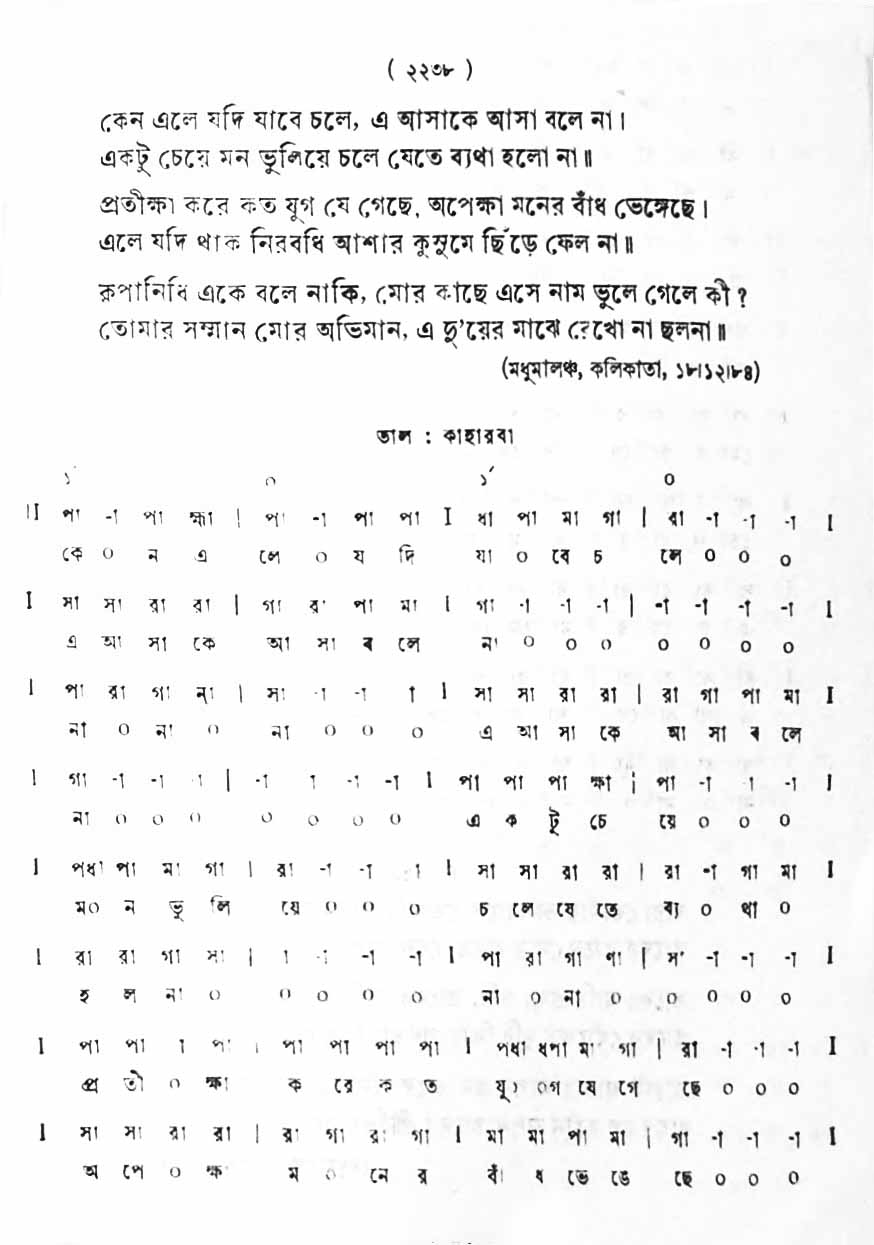 ( ২২৩৮ )
কেন এলে যদি যাবে চলে, এ আসাকে আসা বলে না।
একটু চেয়ে মন ভুলিয়ে চলে যেতে ব্যথা হলো না॥
প্রতীক্ষা করে কত যুগ যে গেছে, অপেক্ষা মনের বাঁধ ভেঙ্গেছে।
এলে যদি থাক নিরবধি আশার কুসুমে ছিঁড়ে ফেল না॥
কৃপানিধি একে বলে নাকি, মোর কাছে এসে নাম ভুলে গেলে কী?
তোমার সম্মান মোর অভিমান, এ দু'য়ের মাঝে রেখো না ছলনা॥
(মধুমালঞ্চ, কলিকাতা, ১৮।১২।৮৪)
তাল : কাহারবা
১´ ০ ১´ ০
II পা -া পা হ্মা | পা -া পা পা I ধা পা মা গা | রা -া -া -া I
কে ০ ন এ লে ০ য দি যা ০ বে চ লে ০ ০ ০
I সা সা রা রা | গা রা পা মা I গা -া -া -া | -া -া -া -া I
এ আ সা কে আ সা ব লে না ০ ০ ০ ০ ০ ০ ০
I পা রা গা ন্া | সা -া -া া I সা সা রা রা | রা গা পা মা I
না ০ না ০ না ০ ০ ০ এ আ সা কে আ সা ব লে
I গা -া -া া | -া া -া -া I পা পা পা হ্মা | পা -া া -া I
না ০ ০ ০ ০ ০ ০ ০ এ ক টু চে য়ে ০ ০ ০
I পধা পা মা গা | রা -া -া া I সা সা রা রা | রা -া গা মা I
ম০ ন ভু লি য়ে ০ ০ ০ চ লে যে তে ব্য ০ থা ০
I রা রা গা সা | া -া -া -া I পা রা গা ণা | সা -া -া -া I
হ ল না ০ ০ ০ ০ ০ না ০ না ০ ০ ০ ০ ০
I পা পা া পা | পা পা পা পা I পধা ধপা মা গা | রা -া -া -া I
প্র তী ০ ক্ষা ক রে ক ত যু০ ০গ যে গে ছে ০ ০ ০
I সা সা রা রা | রা গা রা গা I মা মা পা মা | গা -া -া -া I
অ পে ০ ক্ষা ম ০ নে র বাঁ ধ ভে ঙে ছে ০ ০ ০